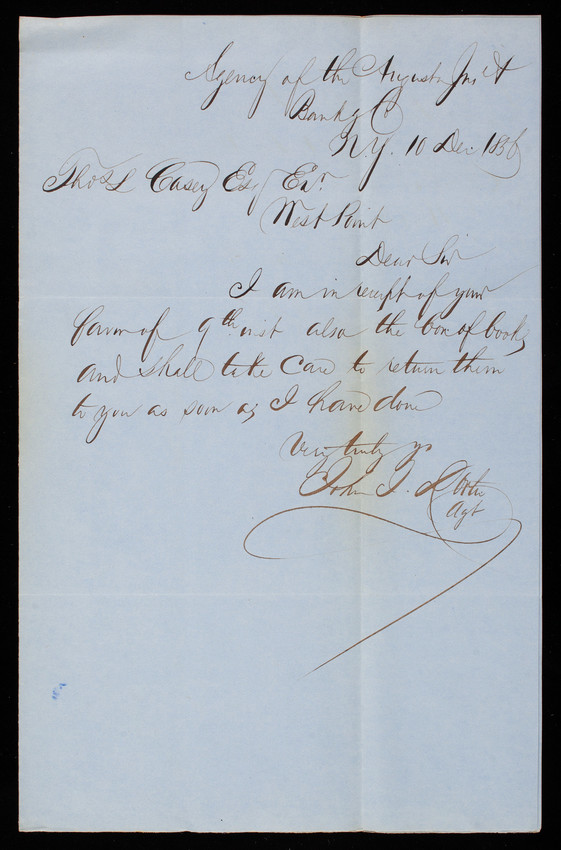 Agency of the Augusta Ins &
Bankg Co
N.Y. 10 Dec. 1856
Thos L Casey Esq Exr
West Point
Dear Sir
I am in receipt of your
favor of 9th inst also the box of books,
and shall take care to return them
to you as soon as I have done
Very truly yrs
John J.
Agt